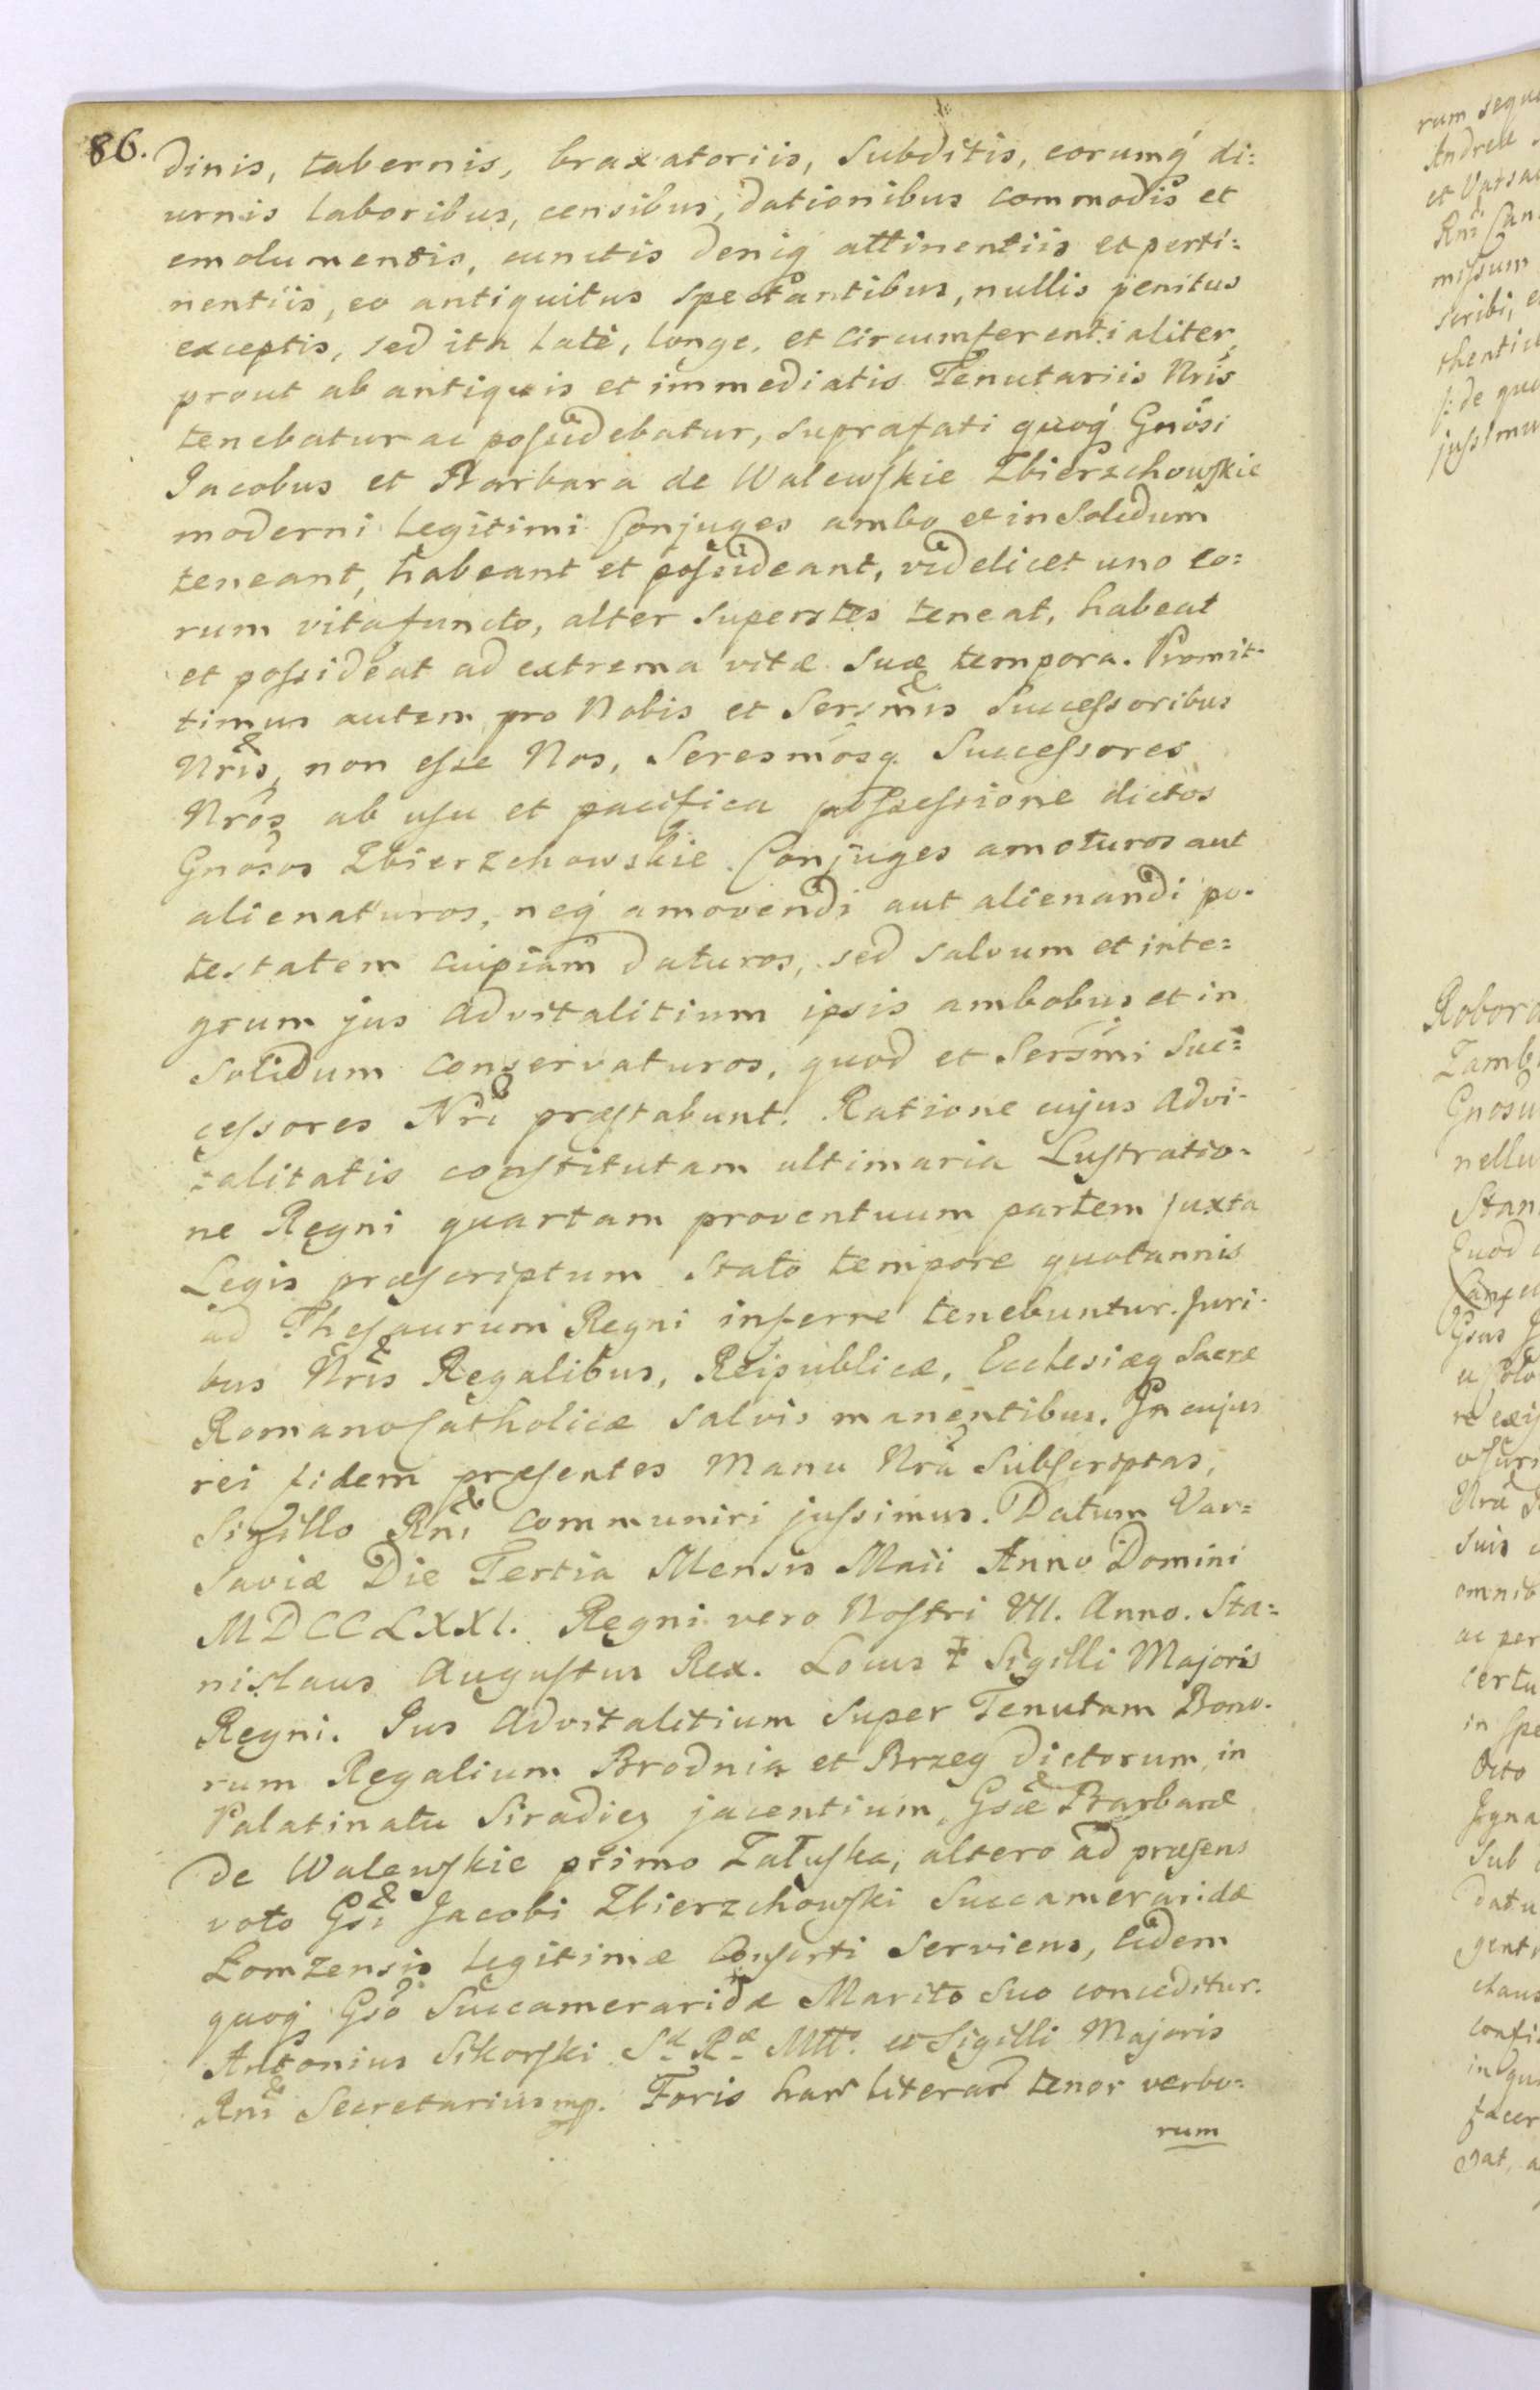 86.
dinis, tabernis, braxatoriis, Subditis, eorumq́ di:
urnis laboribus, censibus, dationibus commodis et
emolumentis, cunctis deniq attinentiis et perti:
nentiis, eo antiquitus spectantibus, nullis penitus
exceptis, sed ita latè, longe, et circumferentialiter,
prout ab antiquis et immediatis Tenutariis Nrĩs
tenebatur ac possidebatur, suprafati quoq́ Gnõsi
Jacobus et Barbara de Walewskie Zbierzchowskie
moderni legitimi Conjuges ambo et in Solidum
teneant, habeant et possideant, videlicet uno eo:
rum vita functo, alter Superstes teneat, habeat
et possideat ad extrema vitæ Suæ tempora. Promit-
timus autem pro Nobis et Sersmis Successoribus
Nrĩs, non esse Nos, Seresmõsq Successores
Nrõs ab usu et pacifica possessione dictos
Gnõsos Zbierzchowskie Conjuges amoturos aut
alienaturos, neq́ amovendi aut alienandi po-
testatem cuipiam daturos, sed salvum et inte:
grum jus advitalitium ipsis ambobus et in
Solidum conservaturos, quod et Sersmi Suc=
cessores Nrĩ præstabunt. Ratione cujus advi-
talitatis constitutam ultimaria Lustratio-
ne Regni quartam proventuum partem juxta
Legis præscriptum stato tempore quotannis
ad Thesaurum Regni inferre tenebuntur. Juri-
bus Nrĩs Regalibus, Reipublicæ, Ecclesiæq Sacræ
Romano Catholicæ salvis manentibus. In cujus
rei fidem præsentes Manu Nrã Subscriptas,
Sigillo Rnĩ communiri jussimus. Datum Var=
saviæ Die Tertia Mensis Maii Anno Domini
MDCCLXXI. Regni vero Nostri VII. Anno. Sta:
nislaus Augustus Rex. Locus ‡ Sigilli Majoris
Regni. Jus Advitalitium Super Tenutam Bono-
rum Regalium Brodnia et Brzeg dictorum, in
Palatinatu Siradien jacentium, Gsæ Barbaræ
de Walewskie primo Załuska, altero ad præsens
voto Gsĩ Jacobi Zbierzchowski Succameraridæ
Łomzensis legitimæ Consorti Serviens, eidem
quoq Gsõ Succameraridæ Marito Suo conceditur.
Antonius Sikorski S. R. Mtts. et Sigilli Majoris
Rnĩ Secretarius mp. Foris har literar tenor verbo:
rum
rum sequ
Andreæ
et Varsa
Rnĩ Can
missum
scribi, e
thentic
/: de quo
jussimu
Robora
Zamb
Gnosu
nellu
Stan
Quod
omnib
ac per
certu
in spe
Octo
Igna
Sub
datu
genti
claus
confi
in qu
facer